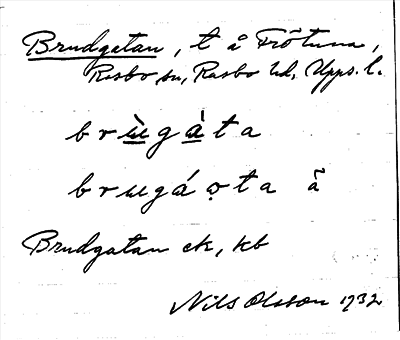 Brudgatan, t å Frötuna,
Rasbo sn, Rasbo hd, Upps. l.
brùgàta
brugáọta ã
Brudgatan ek, kb
Nils Olsson 1932